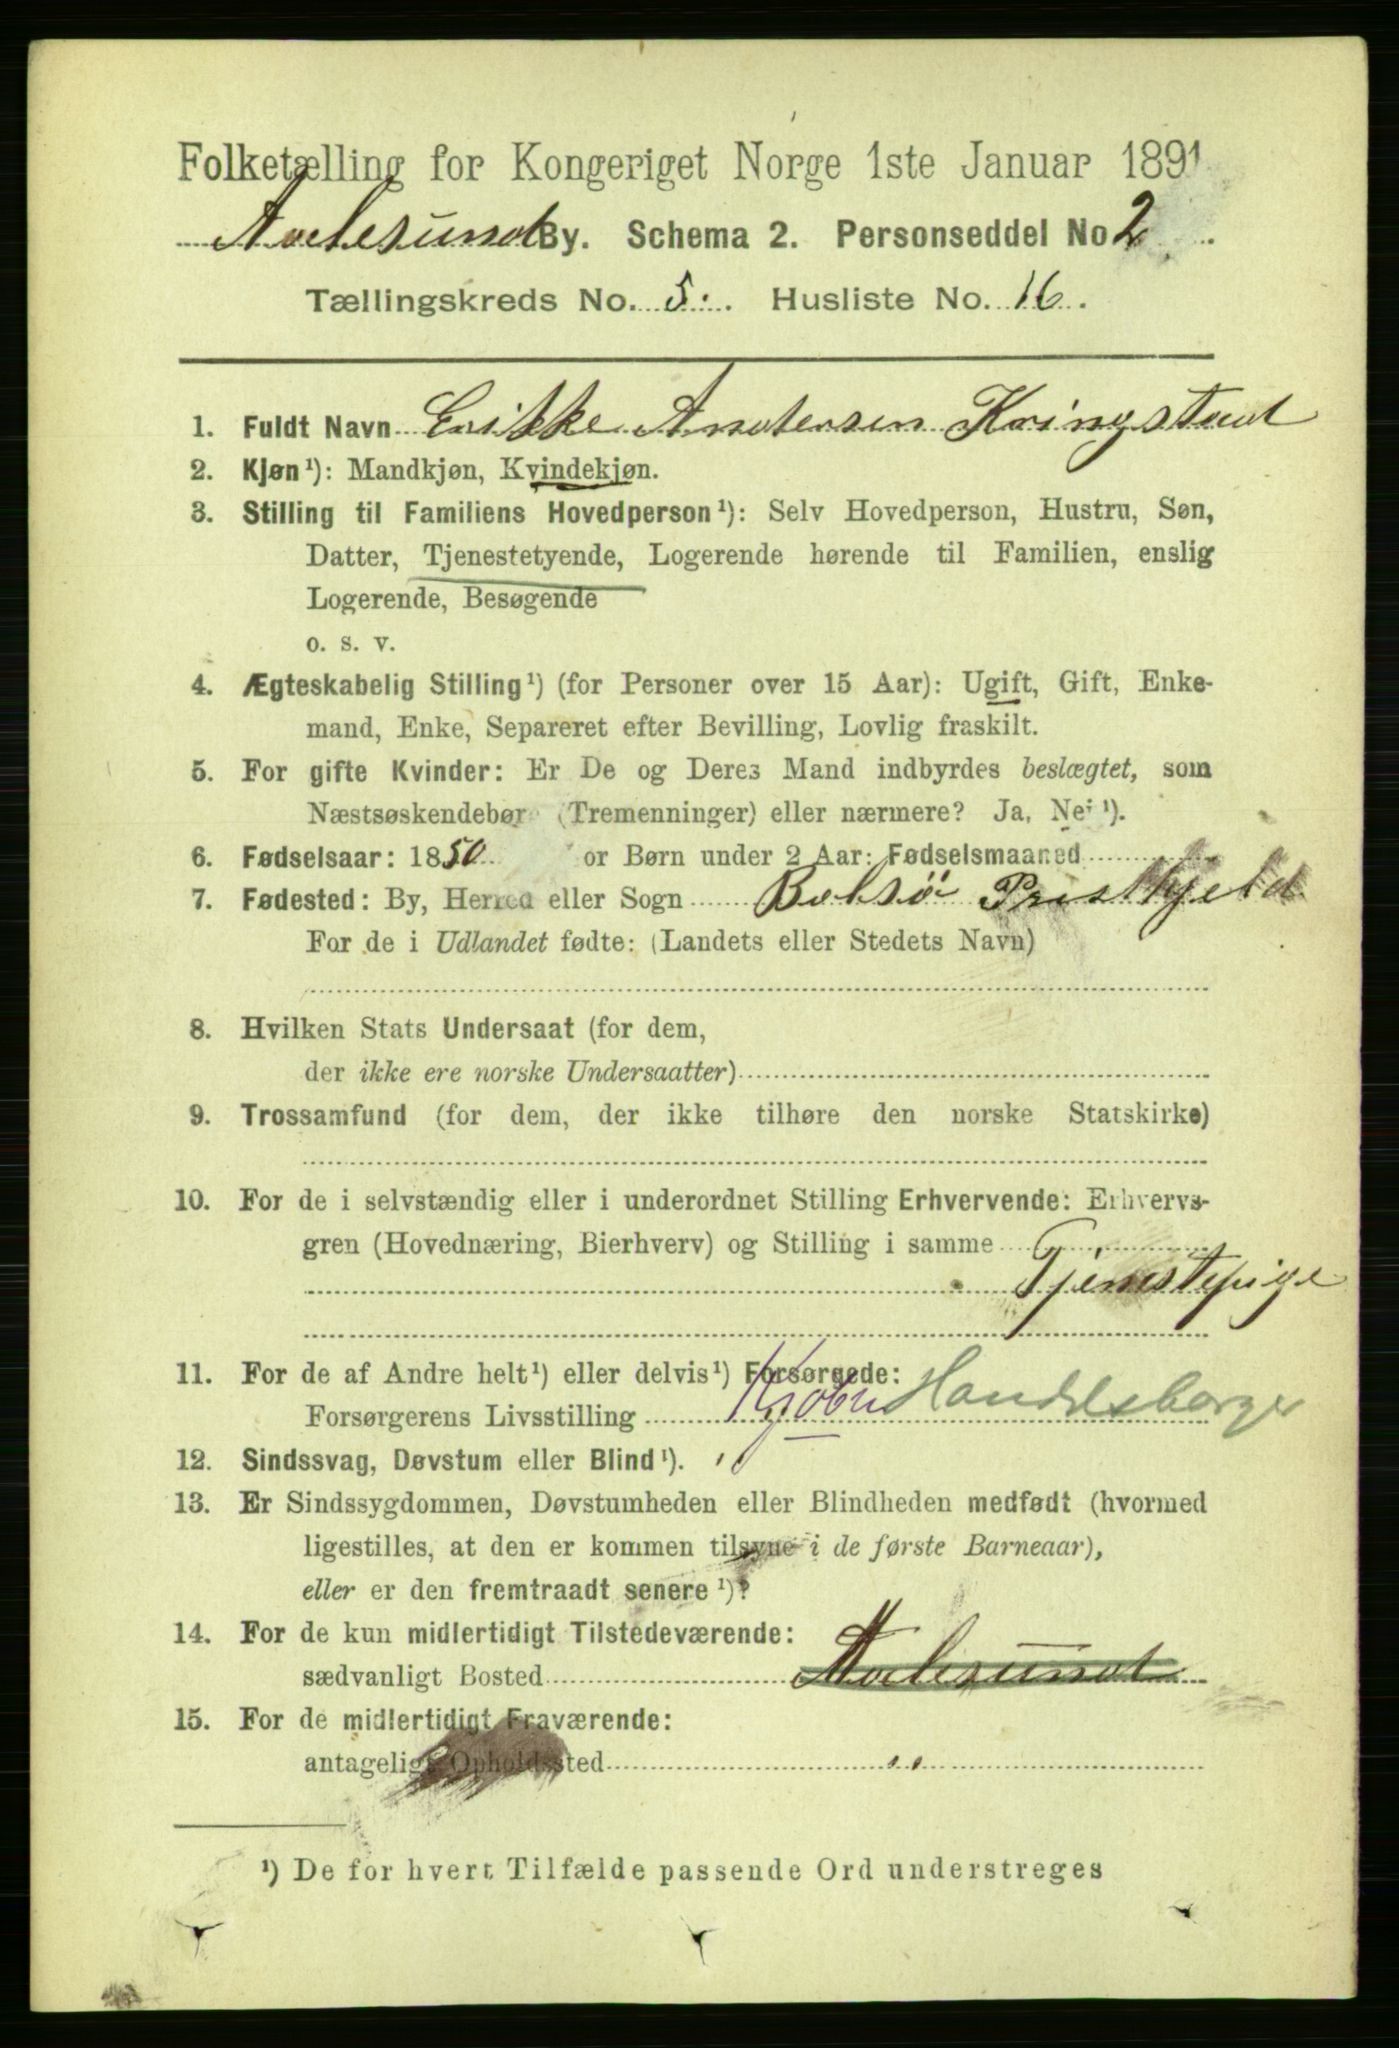 Folketælling for Kongeriget Norge 1ste Januar 1891
Aalesund By. Schema 2. Personseddel No 2
Tællingskreds No. 5. Husliste No. 16.
1. Fuldt Navn Erikke Andersen Kringstad
2. Kjøn¹): Mandkjøn, Kvindekjøn.
3. Stilling til Familiens Hovedperson¹): Selv Hovedperson, Hustru, Søn,
Datter, Tjenestetyende, Logerende hørende til Familien, enslig
Logerende, Besøgende
o. s. v.
4. Ægteskabelig Stilling¹) (for Personer over 15 Aar): Ugift, Gift, Enke-
mand, Enke, Separeret efter Bevilling, Lovlig fraskilt.
5. For gifte Kvinder: Er De og Deres Mand indbyrdes beslægtet, som
Næstsøskendebør (Tremenninger) eller nærmere? Ja, Nei ¹).
6. Fødselsaar: 1850 or Børn under 2 Aar: Fødselsmaaned
7. Fødested: By, Herred eller Sogn Bolsö Prestkjeld
For de i Udlandet fødte: (Landets eller Stedets Navn)
8. Hvilken Stats Undersaat (for dem,
der ikke ere norske Undersaatter)
9. Trossamfund (for dem, der ikke tilhøre den norske Statskirke)
10. For de i selvstændig eller i underordnet Stilling Erhvervende: Erhvervs-
gren (Hovednæring, Bierhverv) og Stilling i samme
Tjenestepige
11. For de af Andre helt¹) eller delvis¹) Forsørgede:
Forsørgerens Livsstilling Handelsborger
12. Sindssvag, Døvstum eller Blind¹).
13. Er Sindssygdommen, Døvstumheden eller Blindheden medfødt (hvormed
ligestilles, at den er kommen tilsyne i de første Barneaar),
eller er den fremtraadt senere ¹)?
14. For de kun midlertidigt Tilstedeværende:
sædvanligt Bosted Aalesund
15. For de midlertidigt Fraværende:
antageligt Opholdssted
¹) De for hvert Tilfælde passende Ord understreges